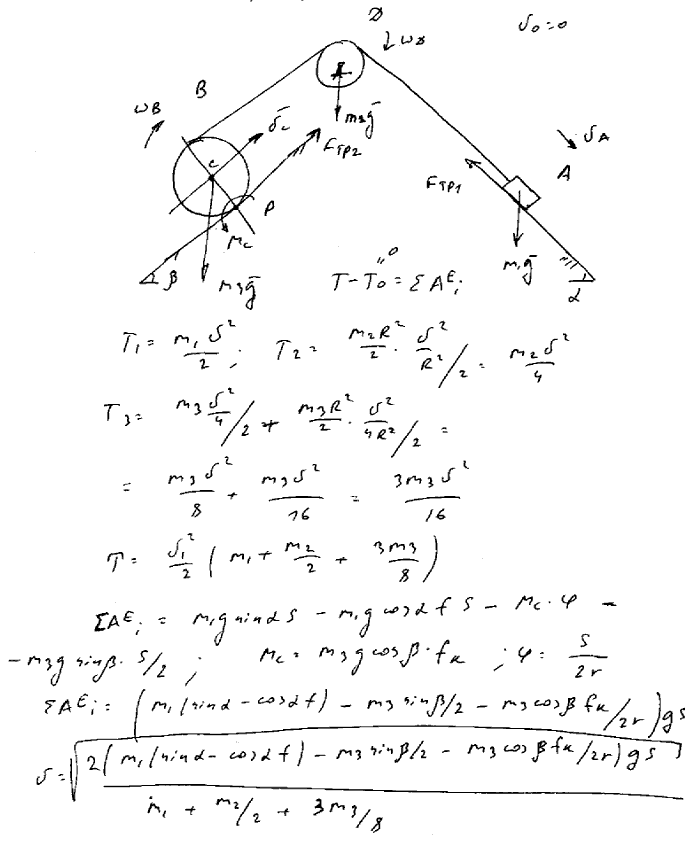 D
ω_D
υ_0=0
B
ω_B
ῡ_C
m_2ḡ
F_тр2
υ_A
A
F_тр1
C
P
M_C
β
m_3ḡ
m_1ḡ
α
T - T_0 = ΣA^E_i
0
T_1 = m_1υ²/2 ; T_2 = m_2R²/2 · υ²/R² /2 = m_2υ²/4
T_3 = m_3 υ²/4 /2 + m_3R²/2 · υ²/4R² /2 =
= m_3υ²/8 + m_3υ²/16 = 3m_3υ²/16
T = υ_1²/2 ( m_1 + m_2/2 + 3m_3/8 )
ΣA^E_i = m_1g sinα S - m_1g cosα f S - M_C·φ -
- m_3g sinβ · S/2 ; M_C = m_3g cosβ · f_к ; φ = S/2r
ΣA^E_i = ( m_1(sinα - cosα f) - m_3 sinβ/2 - m_3 cosβ f_к/2r ) gs
υ = √( 2( m_1(sinα - cosα f) - m_3 sinβ/2 - m_3 cosβ f_к/2r ) gs / m_1 + m_2/2 + 3m_3/8 )